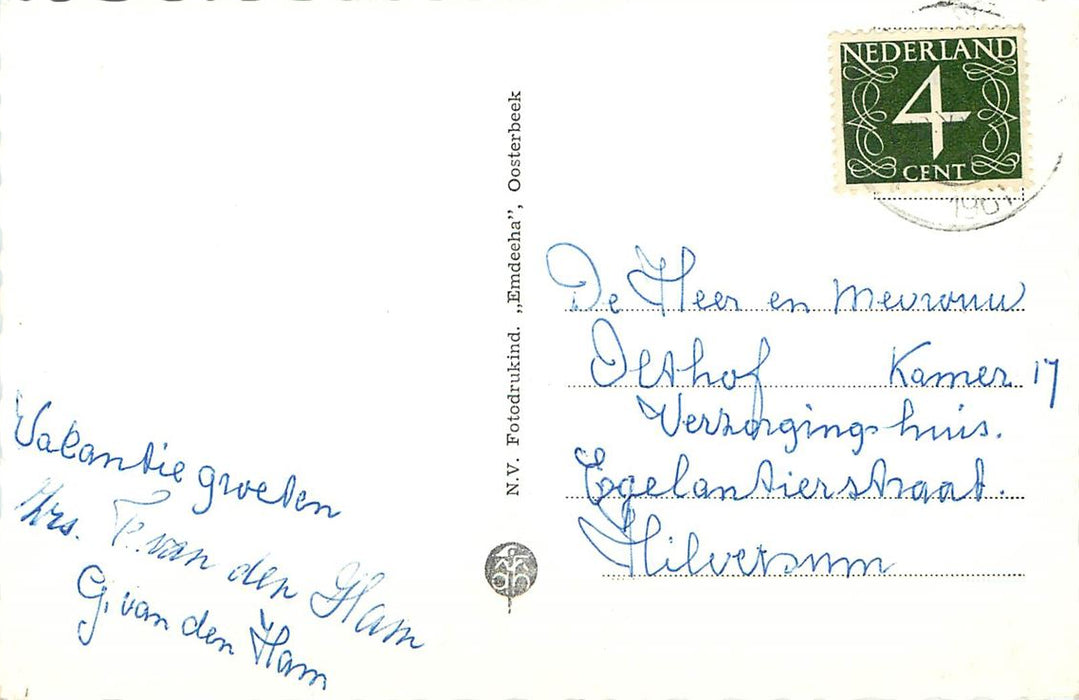 NEDERLAND
4
CENT
N.V. Fotodrukind. „Emdeeha”, Oosterbeek
De Heer en Mevrouw
Olthof Kamer 17
Verzorgingshuis.
Egelantierstraat.
Hilversum
Vakantie groeten
F. van den Ham
G. van den Ham